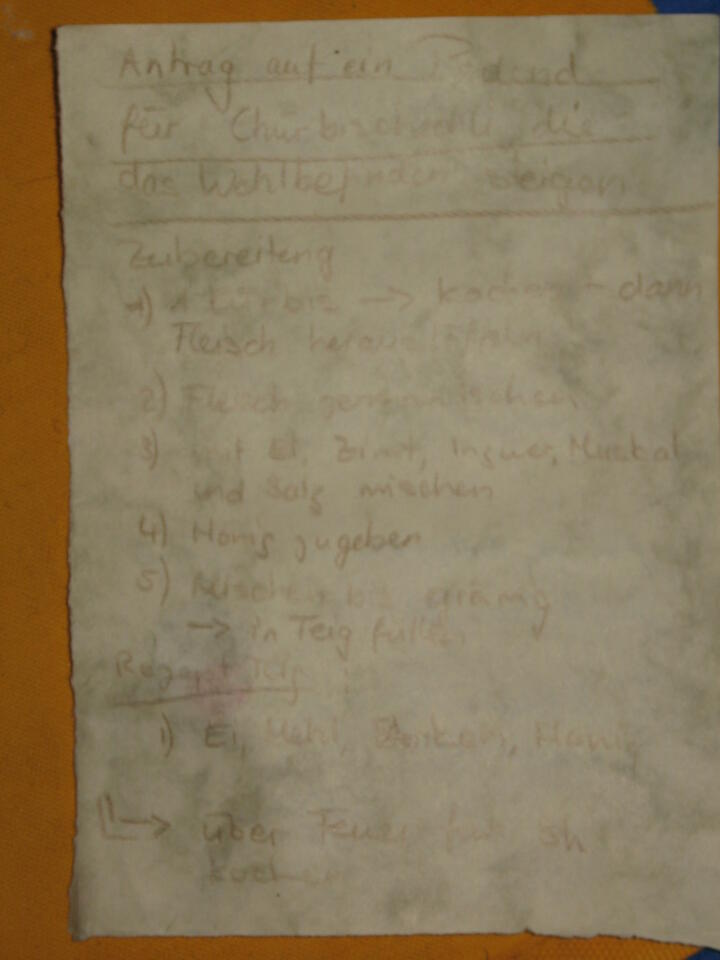 Antrag auf ein
für die
das Wohlbefinden
Zubereiteng
1) 1 Kürbis → kochen - dann
Fleisch
2) Fleisch
3) mit Ei, Zimt, Ingwer, Muskat
und Salz mischen
4) Honig zugeben
5) Mischen bis crämig
→ in Teig füllen
Rezept Teig
1) Ei, Mehl, Honig
über Feuer für 5h